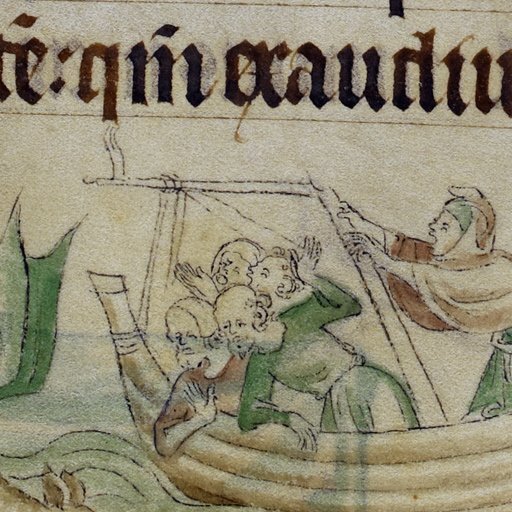 tē: qm̄ exaudiu